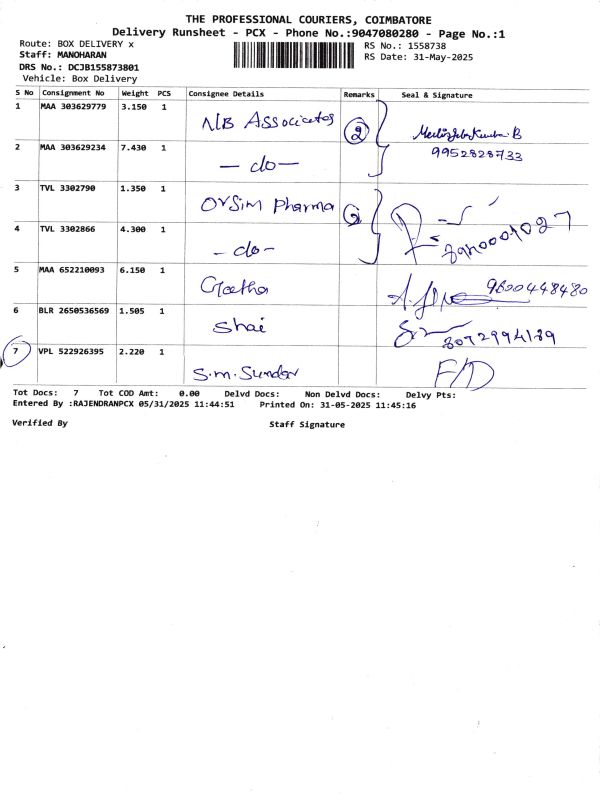 THE PROFESSIONAL COURIERS, COIMBATORE
Delivery Runsheet - PCX - Phone No.:9047080280 - Page No.:1
Route: BOX DELIVERY x
RS No.: 1558738
Staff: MANOHARAN
RS Date: 31-May-2025
DRS No.: DCJB155873801
Vehicle: Box Delivery
S No Consignment No Weight PCS Consignee Details Remarks Seal & Signature
1 MAA 303629779 3.150 1 NB Associates
2
2 MAA 303629234 7.430 1 - do -
9952828733
3 TVL 3302790 1.350 1 Orsim Pharma
2
4 TVL 3302866 4.300 1 - do -
5 MAA 652210093 6.150 1 Geetha 9600448480
6 BLR 2650536569 1.505 1 Shai
7 VPL 522926395 2.220 1 S.M. Sunder F/D
Tot Docs: 7 Tot COD Amt: 0.00 Delvd Docs: Non Delvd Docs: Delvy Pts:
Entered By :RAJENDRANPCX 05/31/2025 11:44:51 Printed On: 31-05-2025 11:45:16
Verified By Staff Signature